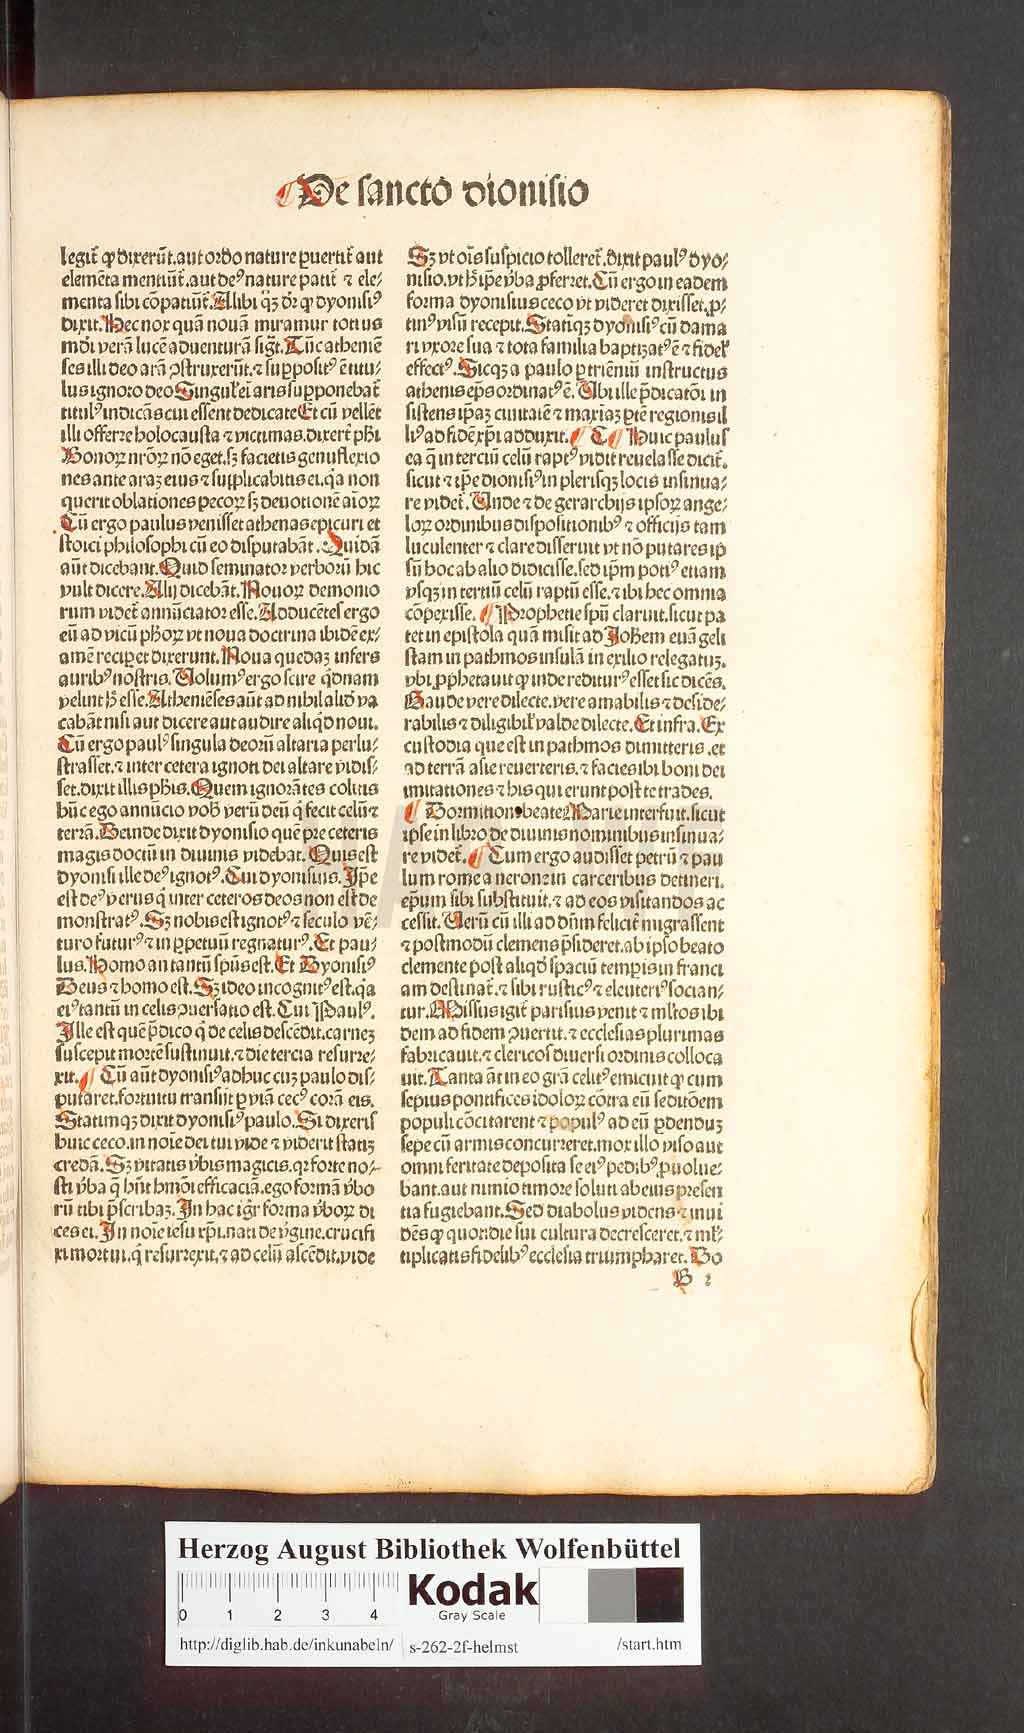 De sancto dionisio
legit̃ ꝙ dixerũt. aut ordo nature ꝑuertit̃ aut
elemẽta mentiũt̃. aut deꝰ nature patit̃ ⁊ ele-
menta sibi cõpatiũt̃. Alibi qʒ dr̃ ꝙ dyonisiꝰ
dixit. Hec nox quã nouã miramur totius
mũdi verã lucẽ aduenturã sigt̃. Tũc atheniẽ
ses illi deo arã ꝯstruxerũt. ⁊ suppositꝰ ẽ titu-
lus ignoto deo Singul̃ eĩ aris supponebat̃
titulꝰ indicãs cui essent dedicate Et cũ vellẽt
illi offerre holocausta ⁊ victimas. dixert̃ ph̃i
Bonoꝝ nr̃oꝝ nõ eget. sʒ facietis genuflexio
nes ante araʒ eius ⁊ supplicabitis ei. qa non
querit oblationes pecoꝝ sʒ deuotionẽ aĩoꝝ
Cũ ergo paulus venisset athenas epicuri et
stoici philosophi cũ eo disputabãt. Quidã
aũt dicebant. Quid seminator verborũ hic
vult dicere. Alij dicebãt. Nouoꝝ demonio
rum videt̃ annũciator esse. Adducẽtes ergo
eũ ad vicũ ph̃oꝝ vt noua doctrina ibidẽ ex-
amẽ reciꝑet dixerunt. Noua quedaʒ infers
auribꝰ nostris. Volumꝰ ergo scire qdnam
velint h̃ esse. Atheniẽses aũt ad nihil aliđ va
cabãt nisi aut dicere aut audire aliqđ noui.
Cũ ergo paulꝰ singula deorũ altaria perlu-
strasset. ⁊ inter cetera ignoti dei altare vidis-
set. dixit illis ph̃is. Quem ignorãtes colitis
hũc ego annũcio vob̃ verũ deũ q̃ fecit celũ ⁊
terrã. Deinde dixit dyonisio quẽ pre ceteris
magis doctũ in diuinis videbat. Quis est
dyonisi ille deꝰ ignotꝰ. Cui dyonisius. Ip̃e
est deꝰ verus q̃ inter ceteros deos non est de
monstratꝰ. Sʒ nobis est ignotꝰ ⁊ seculo vẽ-
turo futurꝰ ⁊ in ꝑpetuũ regnaturꝰ. Et pau-
lus. Homo an tantũ sp̃us est. Et Dyonisiꝰ
Deus ⁊ homo est. Sʒ ideo incognitꝰ est. qa
eiꝰ tantũ in celis ꝯuersatio est. Cui Paulꝰ.
Ille est quẽ p̃dico q̃ de celis descẽdit. carneʒ
suscepit mortẽ sustinuit. ⁊ die tercia resurre-
xit. Cũ aũt dyonisiꝰ adhuc cuʒ paulo dis-
putaret. fortuitu transijt ꝑ viã cecꝰ corã eis.
Statimqʒ dixit dyonisiꝰ paulo. Si dixeris
huic ceco. in noĩe dei tui vide ⁊ viderit statiʒ
credã. Sʒ vtatis v̓bis magicis. qr forte no-
sti v̓ba q̃ hñt hmõi efficaciã. ego formã v̓bo
rũ tibi p̃scribaʒ. In hac igr̃ forma v̓boꝝ di
ces ei. In noĩe iesu xp̃i. nati de v̓gine. crucifi
xi mortui. q̃ resurrexit. ⁊ ad celũ ascẽdit. vide
Sʒ vt oĩs suspicio tolleret̃. dixit paulꝰ dyo-
nisio. vt h̃ ip̃e v̓ba ꝓferret. Cũ ergo in eadem
forma dyonisius ceco vt videret dixisset. ꝓ-
tinꝰ visũ recepit. Statiqʒ dyonisiꝰ cũ dama
ri vxore sua ⁊ tota familia baptizatꝰ ẽ ⁊ fidel̃
effectꝰ. Sicqʒ a paulo ꝑ trieniũ instructus
athenis ep̃s ordinatꝰ ẽ. Vbi ille p̃dicatõi in
sistens ip̃aʒ ciuitatẽ ⁊ maxiaʒ ꝑtẽ regionis il
liꝰ ad fidẽ xp̃i adduxit. C Huic paulus
ea q̃ in terciũ celũ raptꝰ vidit reuelasse dicit̃.
sicut ⁊ ip̃e dionisiꝰ in plerisqʒ locis insinua-
re videt̃. Unde ⁊ de gerarchijs ipsoꝝ ange-
loꝝ ordinibus dispositionibꝰ ⁊ officijs tam
luculenter ⁊ clare disseruit vt nõ putares ip̃
sũ hoc ab alio didicisse. sed ip̃m potiꝰ etiam
vsqʒ in tertiũ celũ raptũ esse. ⁊ ibi hec omnia
cõpexisse. Prophetie spũ claruit. sicut pa
tet in epistola quã misit ad Joh̃em euãgeli
stam in pathmos insulã in exilio relegatuʒ.
vbi ꝓphetauit ꝙ inde rediturꝰ esset sic dicẽs.
Gaude vere dilecte. vere amabilis ⁊ deside-
rabilis ⁊ diligibil̃ valde dilecte. Et infra. Ex
custodia que est in pathmos dimitteris. et
ad terrã asie reuerteris. ⁊ facies ibi boni dei
imitationes ⁊ his qui erunt post te trades.
Dormitioni beate Marie interfuit. sicut
ipse in libro de diuinis nominibus insinua-
re videt̃. Cum ergo audisset petrũ ⁊ pau
lum rome a nerone in carceribus detineri.
ep̃um sibi substituit. ⁊ ad eos visitandos ac
cessit. Verũ cũ illi ad dñm felicit̃ migrassent
⁊ postmodũ clemens p̃sideret. ab ipso beato
clemente post aliqđ spaciũ temp̃is in franci
am destinat̃. ⁊ sibi rusticꝰ ⁊ eleuteriꝰ socian-
tur. Missus igit̃ parisius venit ⁊ ml̃tos ibi
dem ad fidem ꝯuertit. ⁊ ecclesias plurimas
fabricauit. ⁊ clericos diuersi ordinis colloca
uit. Tanta aũt in eo gr̃a celitꝰ emicuit ꝙ cum
sepius pontifices idoloꝝ cõtra eũ seditõem
populi cõcitarent ⁊ populꝰ ad eũ ꝑdenduʒ
sepe cũ armis concurreret. mox illo viso aut
omni feritate deposita se eiꝰ pedibꝰ ꝓuolue-
bant. aut nimio timore soluti ab eius presen
tia fugiebant. Sed diabolus videns ⁊ inui
dẽs ꝙ quotidie sui cultura decresceret. ⁊ ml̃-
tiplicatis fidelibꝰ ecclesia triumpharet. Do
B 2
HAB WF
Herzog August Bibliothek Wolfenbüttel
0 1 2 3 4
Kodak
Gray Scale
http://diglib.hab.de/inkunabeln/ s-262-2f-helmst /start.htm